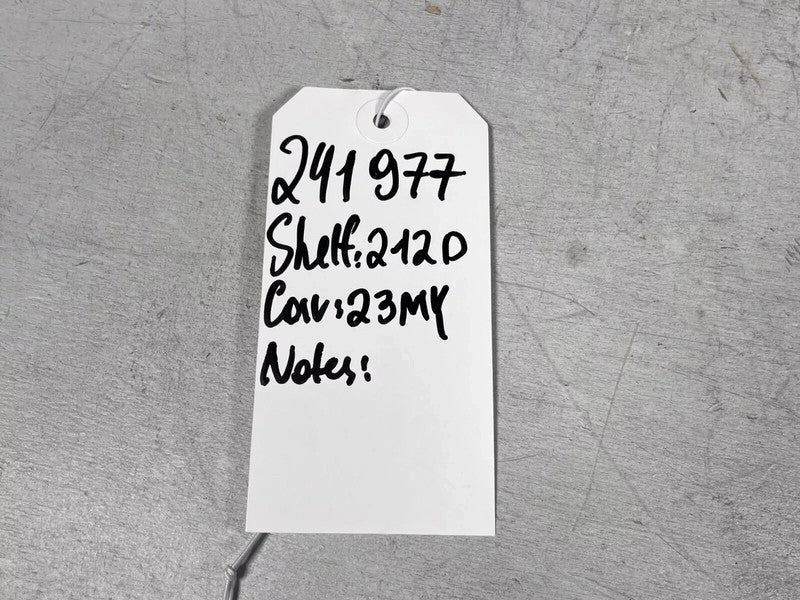 241977
Shelf:212D
Car:23MY
Notes: